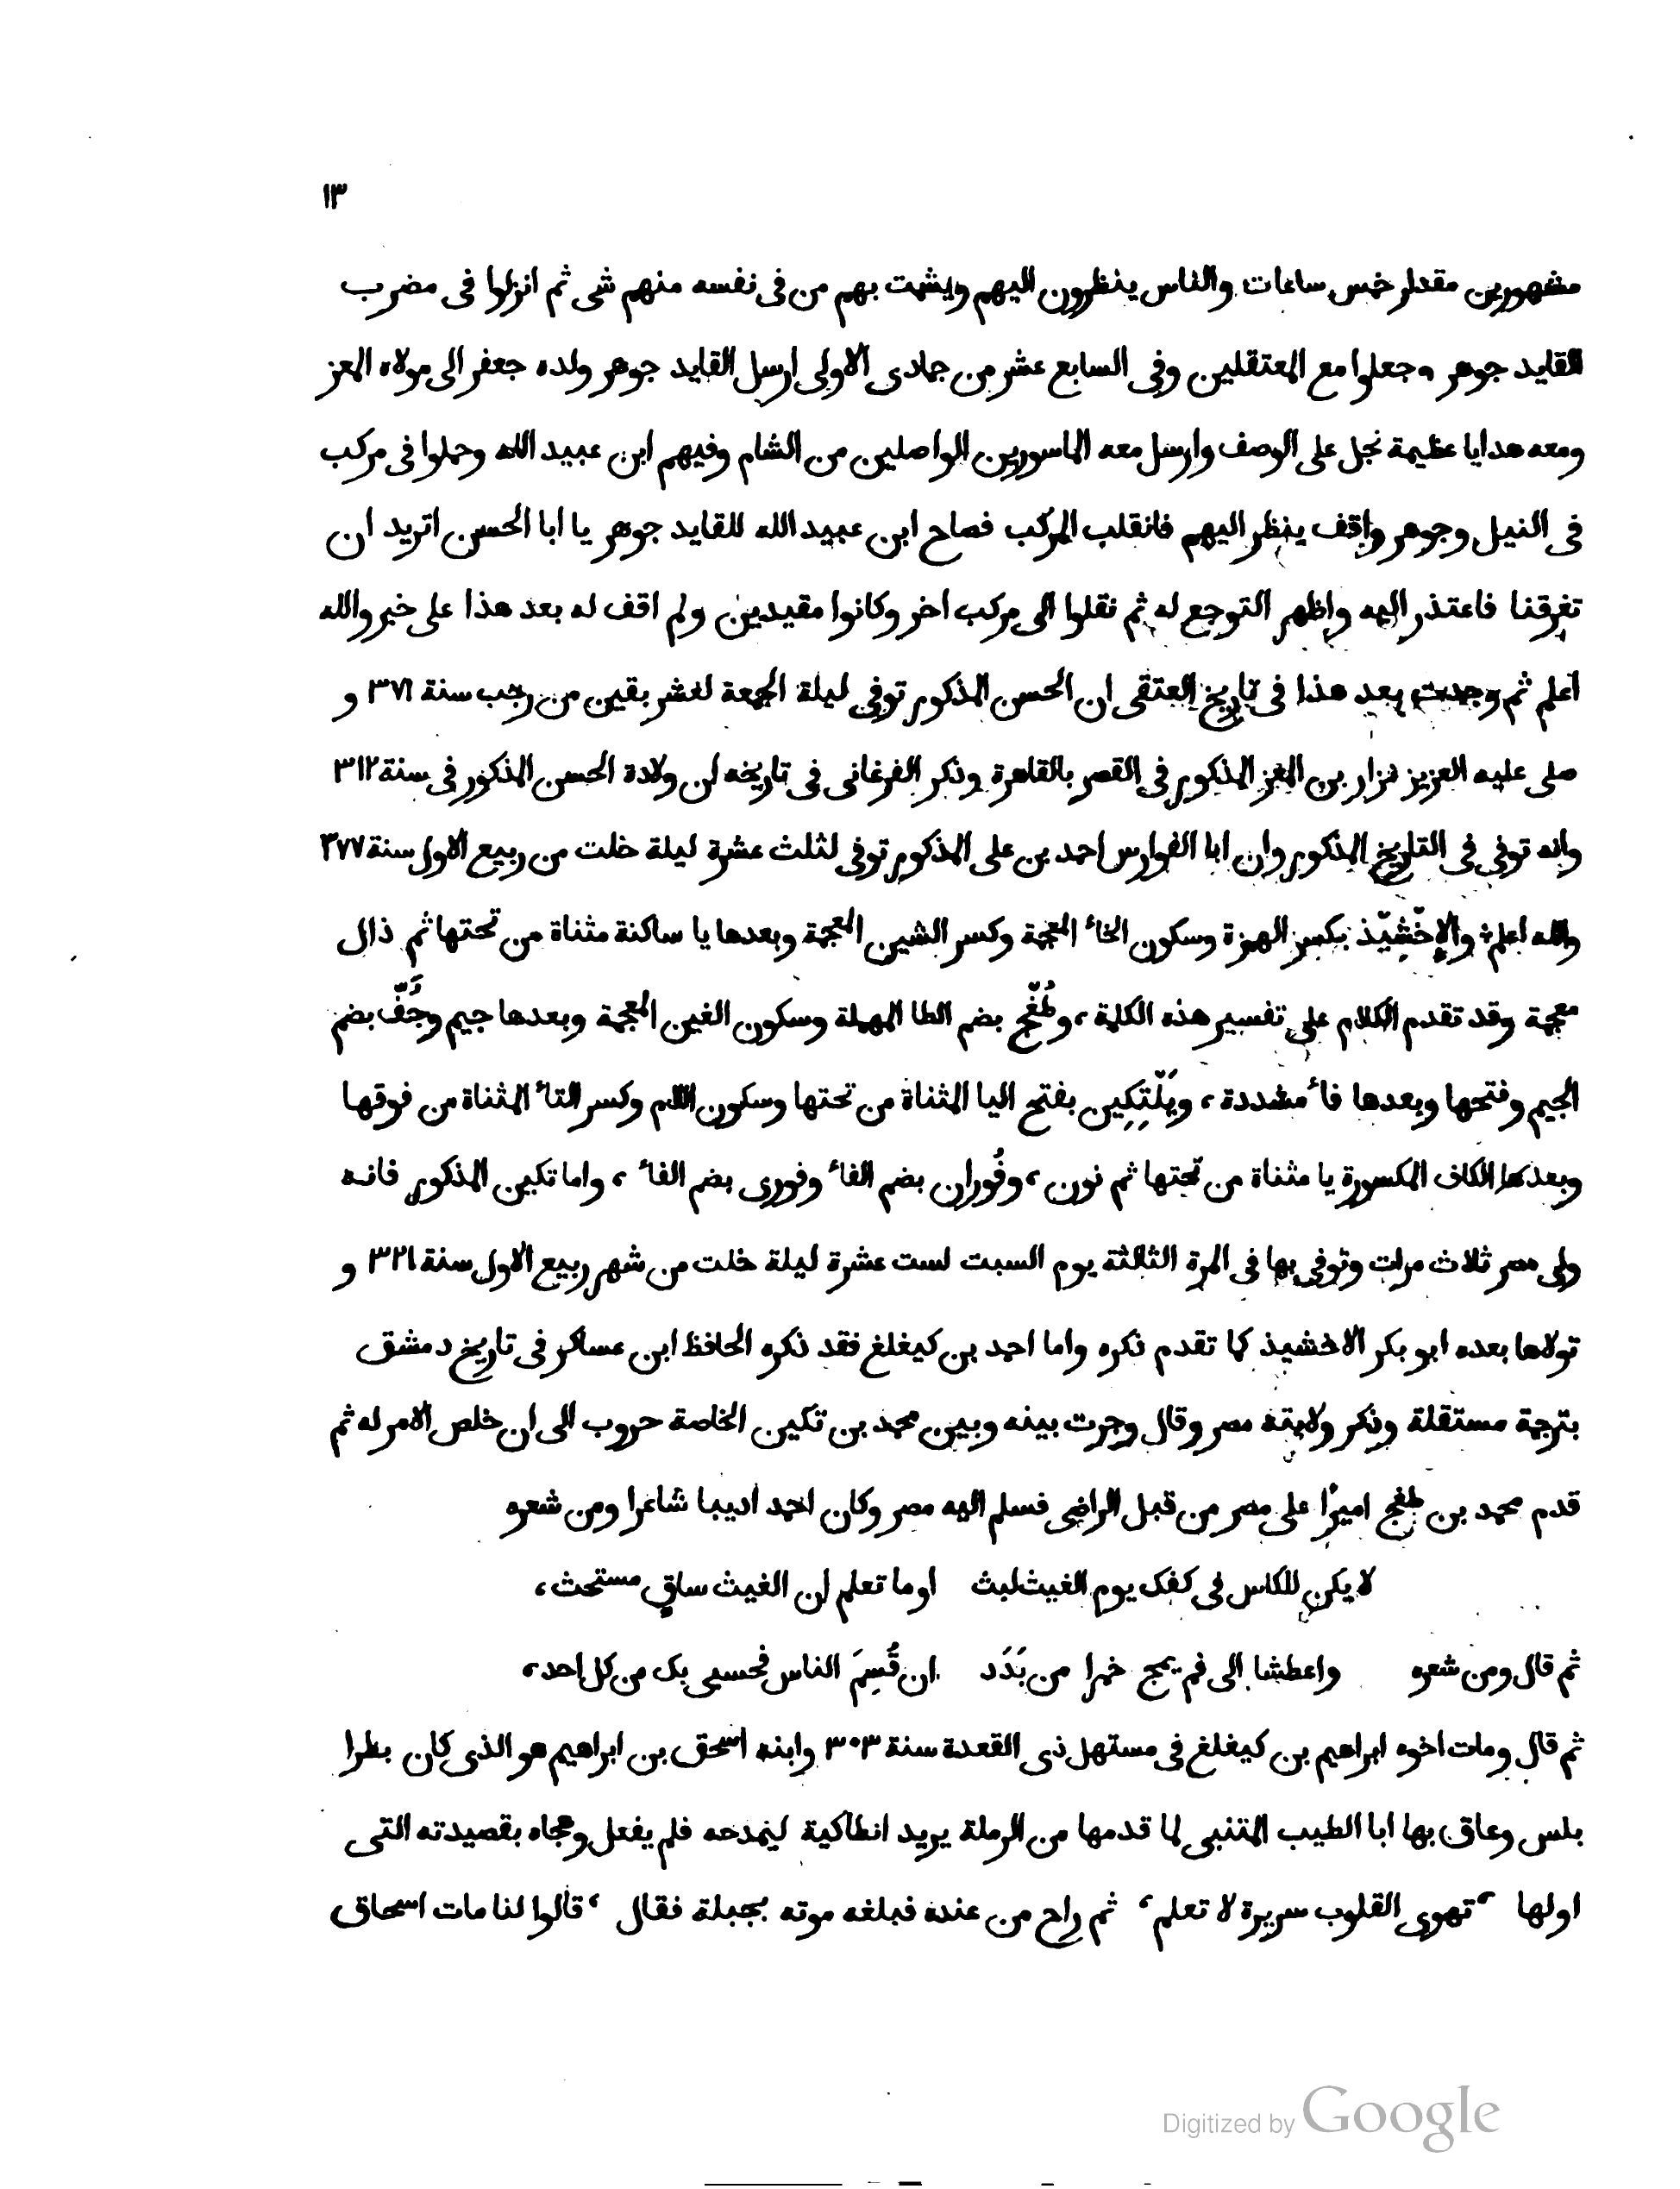 ١٣
مشهورين مقدار خمس ساعات والناس ينظرون اليهم ويشمت بهم من فى نفسه منهم شى ثم انزلوا فى مضرب
القايد جوهر وجعلوا مع المعتقلين وفى السابع عشر من جمادى الاولى ارسل القايد جوهر ولده جعفر الى مولاه المعز
ومعه هدايا عظيمة تجل على الوصف وارسل معه الماسورين الواصلين من الشام وفيهم ابن عبيد الله وحملوا فى مركب
فى النيل وجوهر واقف ينظر اليهم فانقلب المركب فصاح ابن عبيد الله للقايد جوهر يا ابا الحسن اتريد ان
تغرقنا فاعتذر اليه واظهر التوجع له ثم نقلوا الى مركب اخر وكانوا مقيدين ولم اقف له بعد هذا على خبر والله
اعلم ثم وجدت بعد هذا فى تاريخ العتقى ان الحسن المذكور توفى ليلة الجمعة لعشر بقين من رجب سنة ٣٧١ و
صلى عليه العزيز نزار بن المعز المذكور فى القصر بالقاهرة وذكر الفرغانى فى تاريخه ان ولادة الحسن المذكور فى سنة ٣١٢
وانه توفى فى التاريخ المذكور وان ابا الفوارس احمد بن على المذكور توفى لثلث عشرة ليلة خلت من ربيع الاول سنة ٣٧٧
والله اعلم، والإخْشِيّذ بكسر الهمزة وسكون الخاء المعجمة وكسر الشين المعجمة وبعدها يا ساكنة مثناة من تحتها ثم ذال
معجمة وقد تقدم الكلام على تفسير هذه الكلمة، وطُغْج بضم الطا المهملة وسكون الغين المعجمة وبعدها جيم وجُفّ بضم
الجيم وفتحها وبعدها فاء مشددة، ويَلْتِكِين بفتح اليا المثناة من تحتها وسكون اللام وكسر التاء المثناة من فوقها
وبعدها الكاف المكسورة يا مثناة من تحتها ثم نون، وفُوران بضم الفاء وفورى بضم الفاء، واما تكين المذكور فانه
ولى مصر ثلاث مرات وتوفى بها فى المرة الثالثة يوم السبت لست عشرة ليلة خلت من شهر ربيع الاول سنة ٣٢١ و
تولاها بعده ابو بكر الاخشيذ كما تقدم ذكره واما احمد بن كيغلغ فقد ذكره الحافظ ابن عساكر فى تاريخ دمشق
بترجمة مستقلة وذكر ولايته مصر وقال وجرت بينه وبين محمد بن تكين الخاصة حروب الى ان خلص الامر له ثم
قدم محمد بن طغج اميرًا على مصر من قبل الراضى فسلم اليه مصر وكان احمد اديبا شاعرا ومن شعره
لا يكن للكاس فى كفك يوم الغيث لبث اوما تعلم ان الغيث ساقٍ مستحث،
ثم قال ومن شعره واعطشا الى فم يمج خمرا من بَرَد ان قُسِمَ الناس فحسبى بك من كل احد،
ثم قال ومات اخوه ابراهيم بن كيغلغ فى مستهل ذى القعدة سنة ٣٠٣ وابنه اسحق بن ابراهيم هو الذى كان بطرا
بلس وعاق بها ابا الطيب المتنبى لما قدمها من الرملة يريد انطاكية ليمدحه فلم يفعل وهجاه بقصيدته التى
اولها ، تهوى القلوب سريرة لا تعلم، ثم راح من عنده فبلغه موته بجبلة فقال ، قالوا لنا مات اسحاق
Digitized by Google